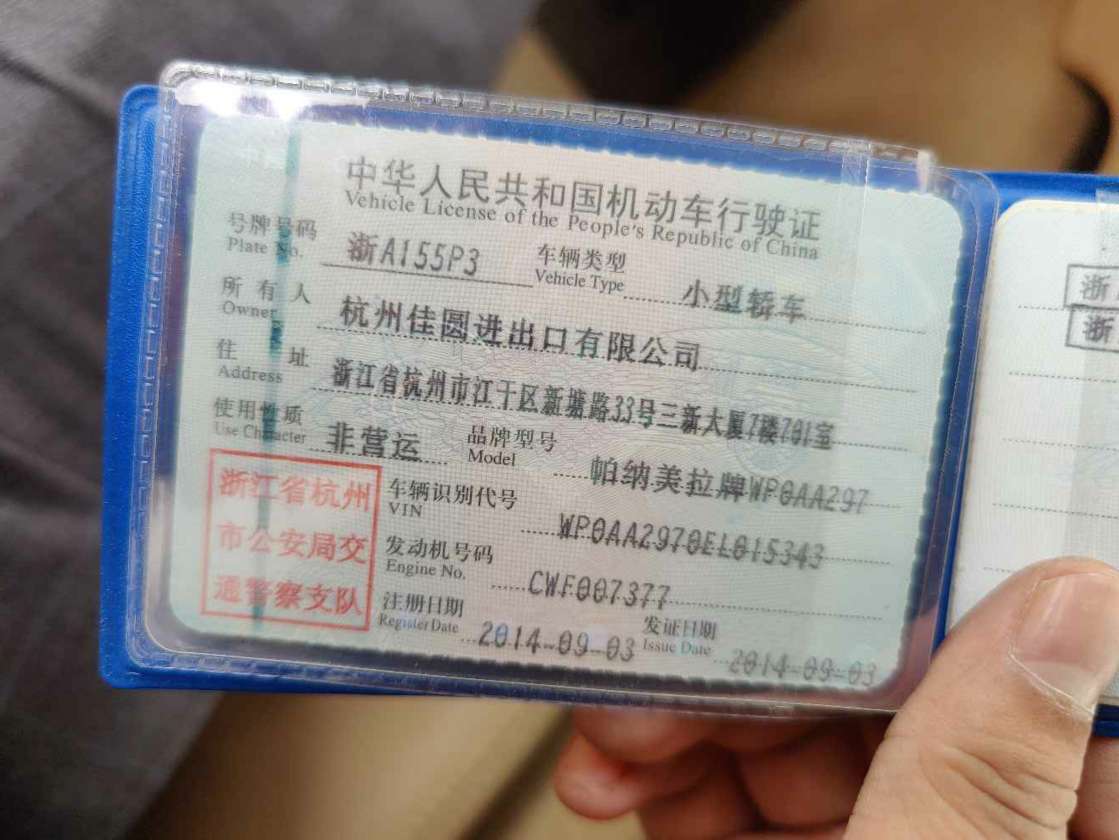 中华人民共和国机动车行驶证
Vehicle License of the People's Republic of China
号牌号码 浙A155P3 车辆类型 小型轿车
Plate No. Vehicle Type
所有人 杭州佳圆进出口有限公司
Owner
住址 浙江省杭州市江干区新塘路33号三新大厦7楼701室
Address
使用性质 非营运 品牌型号 帕纳美拉牌WP0AA297
Use Character Model
浙江省杭州
市公安局交
通警察支队
车辆识别代号 WP0AA2970EL015343
VIN
发动机号码 CWF007377
Engine No.
注册日期 2014-09-03 发证日期 2014-09-03
Register Date Issue Date
浙
浙